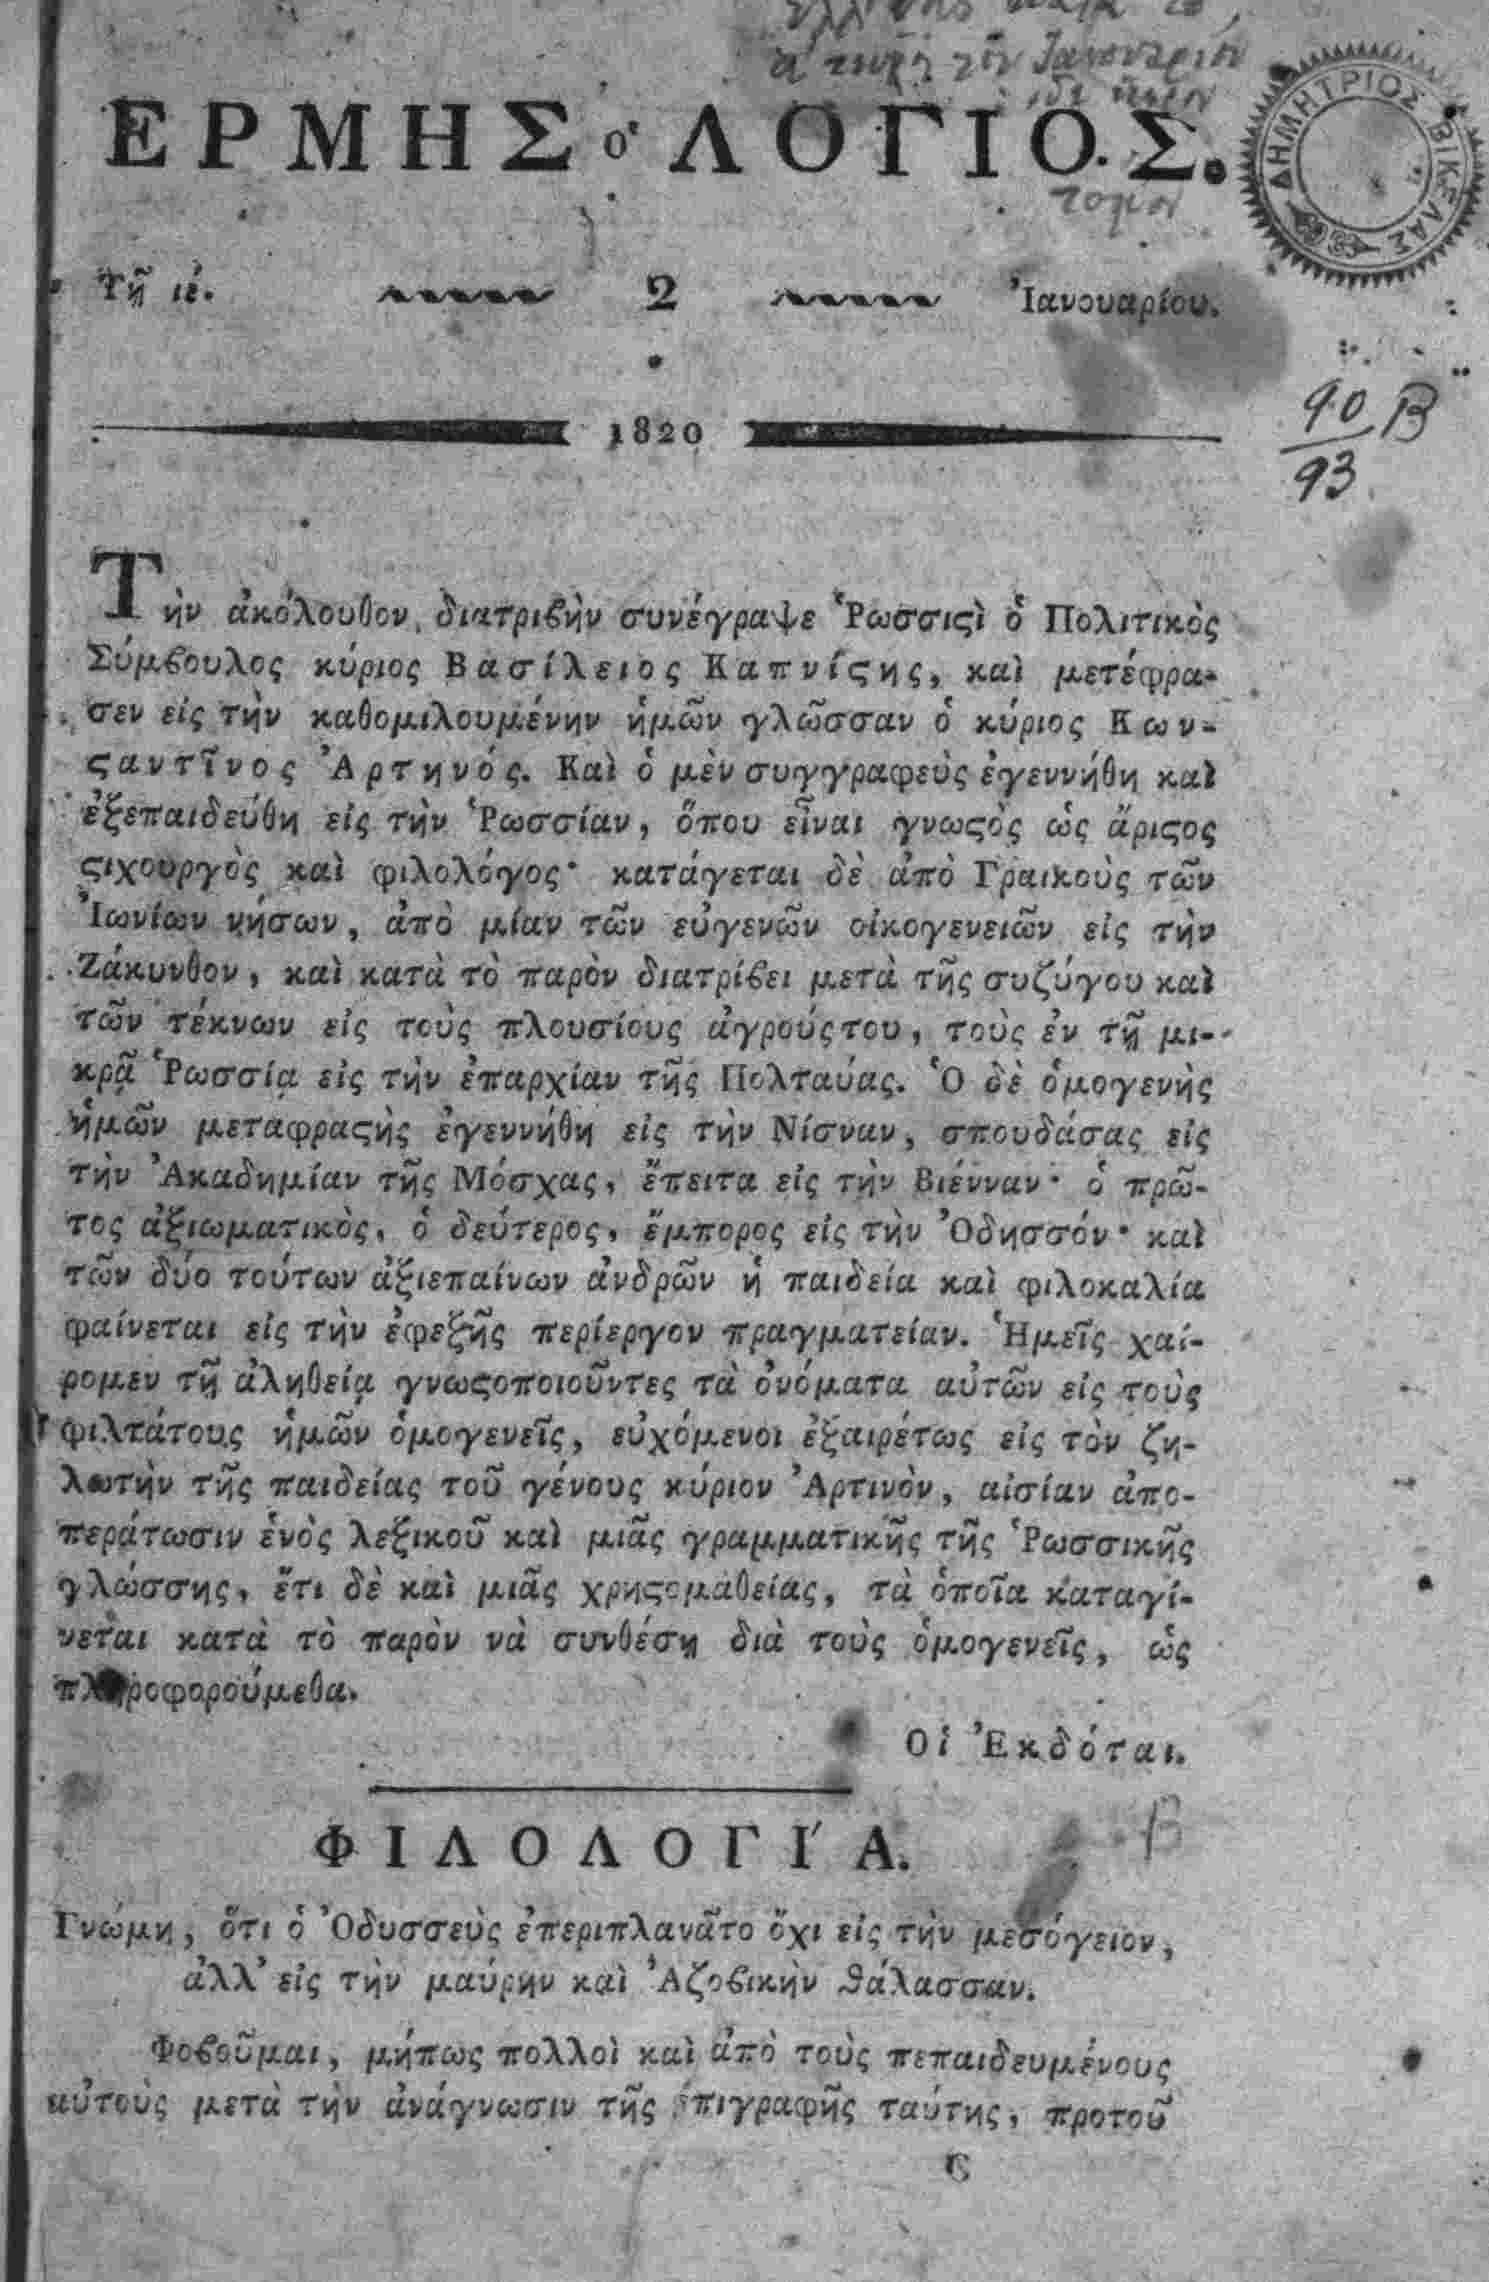 α τευχη τον Ιανουαριον
ΕΡΜΗΣ ὁ ΛΟΓΙΟΣ.
ΔΗΜΗΤΡΙΟΣ ΒΙΚΕΛΑΣ
τομον
Τῇ ιέ. 2 Ἰανουαρίου.
1820
90 Β
93
Τὴν ἀκόλουθον διατριϐὴν συνέγραψε Ῥωσσιϛὶ ὁ Πολιτικὸς
Σύμϐουλος κύριος Βασίλειος Καπνίϛης, καὶ μετέφρα-
σεν εἰς τὴν καθομιλουμένην ἡμῶν γλῶσσαν ὁ κύριος Κων-
ϛαντῖνος Ἀρτηνός. Καὶ ὁ μὲν συγγραφεὺς ἐγεννήθη καὶ
ἐξεπαιδεύθη εἰς τὴν Ῥωσσίαν, ὅπου εἶναι γνωϛὸς ὡς ἄριϛος
ϛιχουργὸς καὶ φιλολόγος· κατάγεται δὲ ἀπὸ Γραικοὺς τῶν
Ἰωνίων νήσων, ἀπὸ μίαν τῶν εὐγενῶν οἰκογενειῶν εἰς τὴν
Ζάκυνθον, καὶ κατὰ τὸ παρὸν διατρίϐει μετὰ τῆς συζύγου καὶ
τῶν τέκνων εἰς τοὺς πλουσίους ἀγρούςτου, τοὺς ἐν τῇ μι-
κρᾷ Ῥωσσίᾳ εἰς τὴν ἐπαρχίαν τῆς Πολταύας. Ὁ δὲ ὁμογενὴς
ἡμῶν μεταφραϛὴς ἐγεννήθη εἰς τὴν Νίσναν, σπουδάσας εἰς
τὴν Ἀκαδημίαν τῆς Μόσχας, ἔπειτα εἰς τὴν Βιένναν· ὁ πρῶ-
τος ἀξιωματικὸς, ὁ δεύτερος, ἔμπορος εἰς τὴν Ὀδησσόν· καὶ
τῶν δύο τούτων ἀξιεπαίνων ἀνδρῶν ἡ παιδεία καὶ φιλοκαλία
φαίνεται εἰς τὴν ἐφεξῆς περίεργον πραγματείαν. Ἡμεῖς χαί-
ρομεν τῇ ἀληθείᾳ γνωϛοποιοῦντες τὰ ὀνόματα αὐτῶν εἰς τοὺς
φιλτάτους ἡμῶν ὁμογενεῖς, εὐχόμενοι ἐξαιρέτως εἰς τὸν ζη-
λωτὴν τῆς παιδείας τοῦ γένους κύριον Ἀρτινὸν, αἰσίαν ἀπο-
περάτωσιν ἑνὸς λεξικοῦ καὶ μιᾶς γραμματικῆς τῆς Ῥωσσικῆς
γλώσσης, ἔτι δὲ καὶ μιᾶς χρηϛομαθείας, τὰ ὁποῖα καταγί-
νεται κατὰ τὸ παρὸν νὰ συνθέσῃ διὰ τοὺς ὁμογενεῖς, ὡς
πληροφορούμεθα.
Οἱ Ἐκδόται.
ΦΙΛΟΛΟΓΙ´Α.
β
Γνώμη, ὅτι ὁ Ὀδυσσεὺς ἐπεριπλανᾶτο ὄχι εἰς τὴν μεσόγειον,
ἀλλ’ εἰς τὴν μαύρην καὶ Ἀζοϐικὴν ϑάλασσαν.
Φοϐοῦμαι, μήπως πολλοὶ καὶ ἀπὸ τοὺς πεπαιδευμένους
αὐτοὺς μετὰ τὴν ἀνάγνωσιν τῆς ἐπιγραφῆς ταύτης, προτοῦ